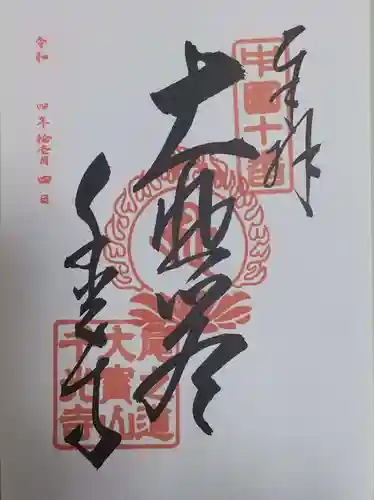 奉拝
中國十番
大悲閣
尾之道
大寳山
千光寺
千光寺
令和 四年拾壱月 四日